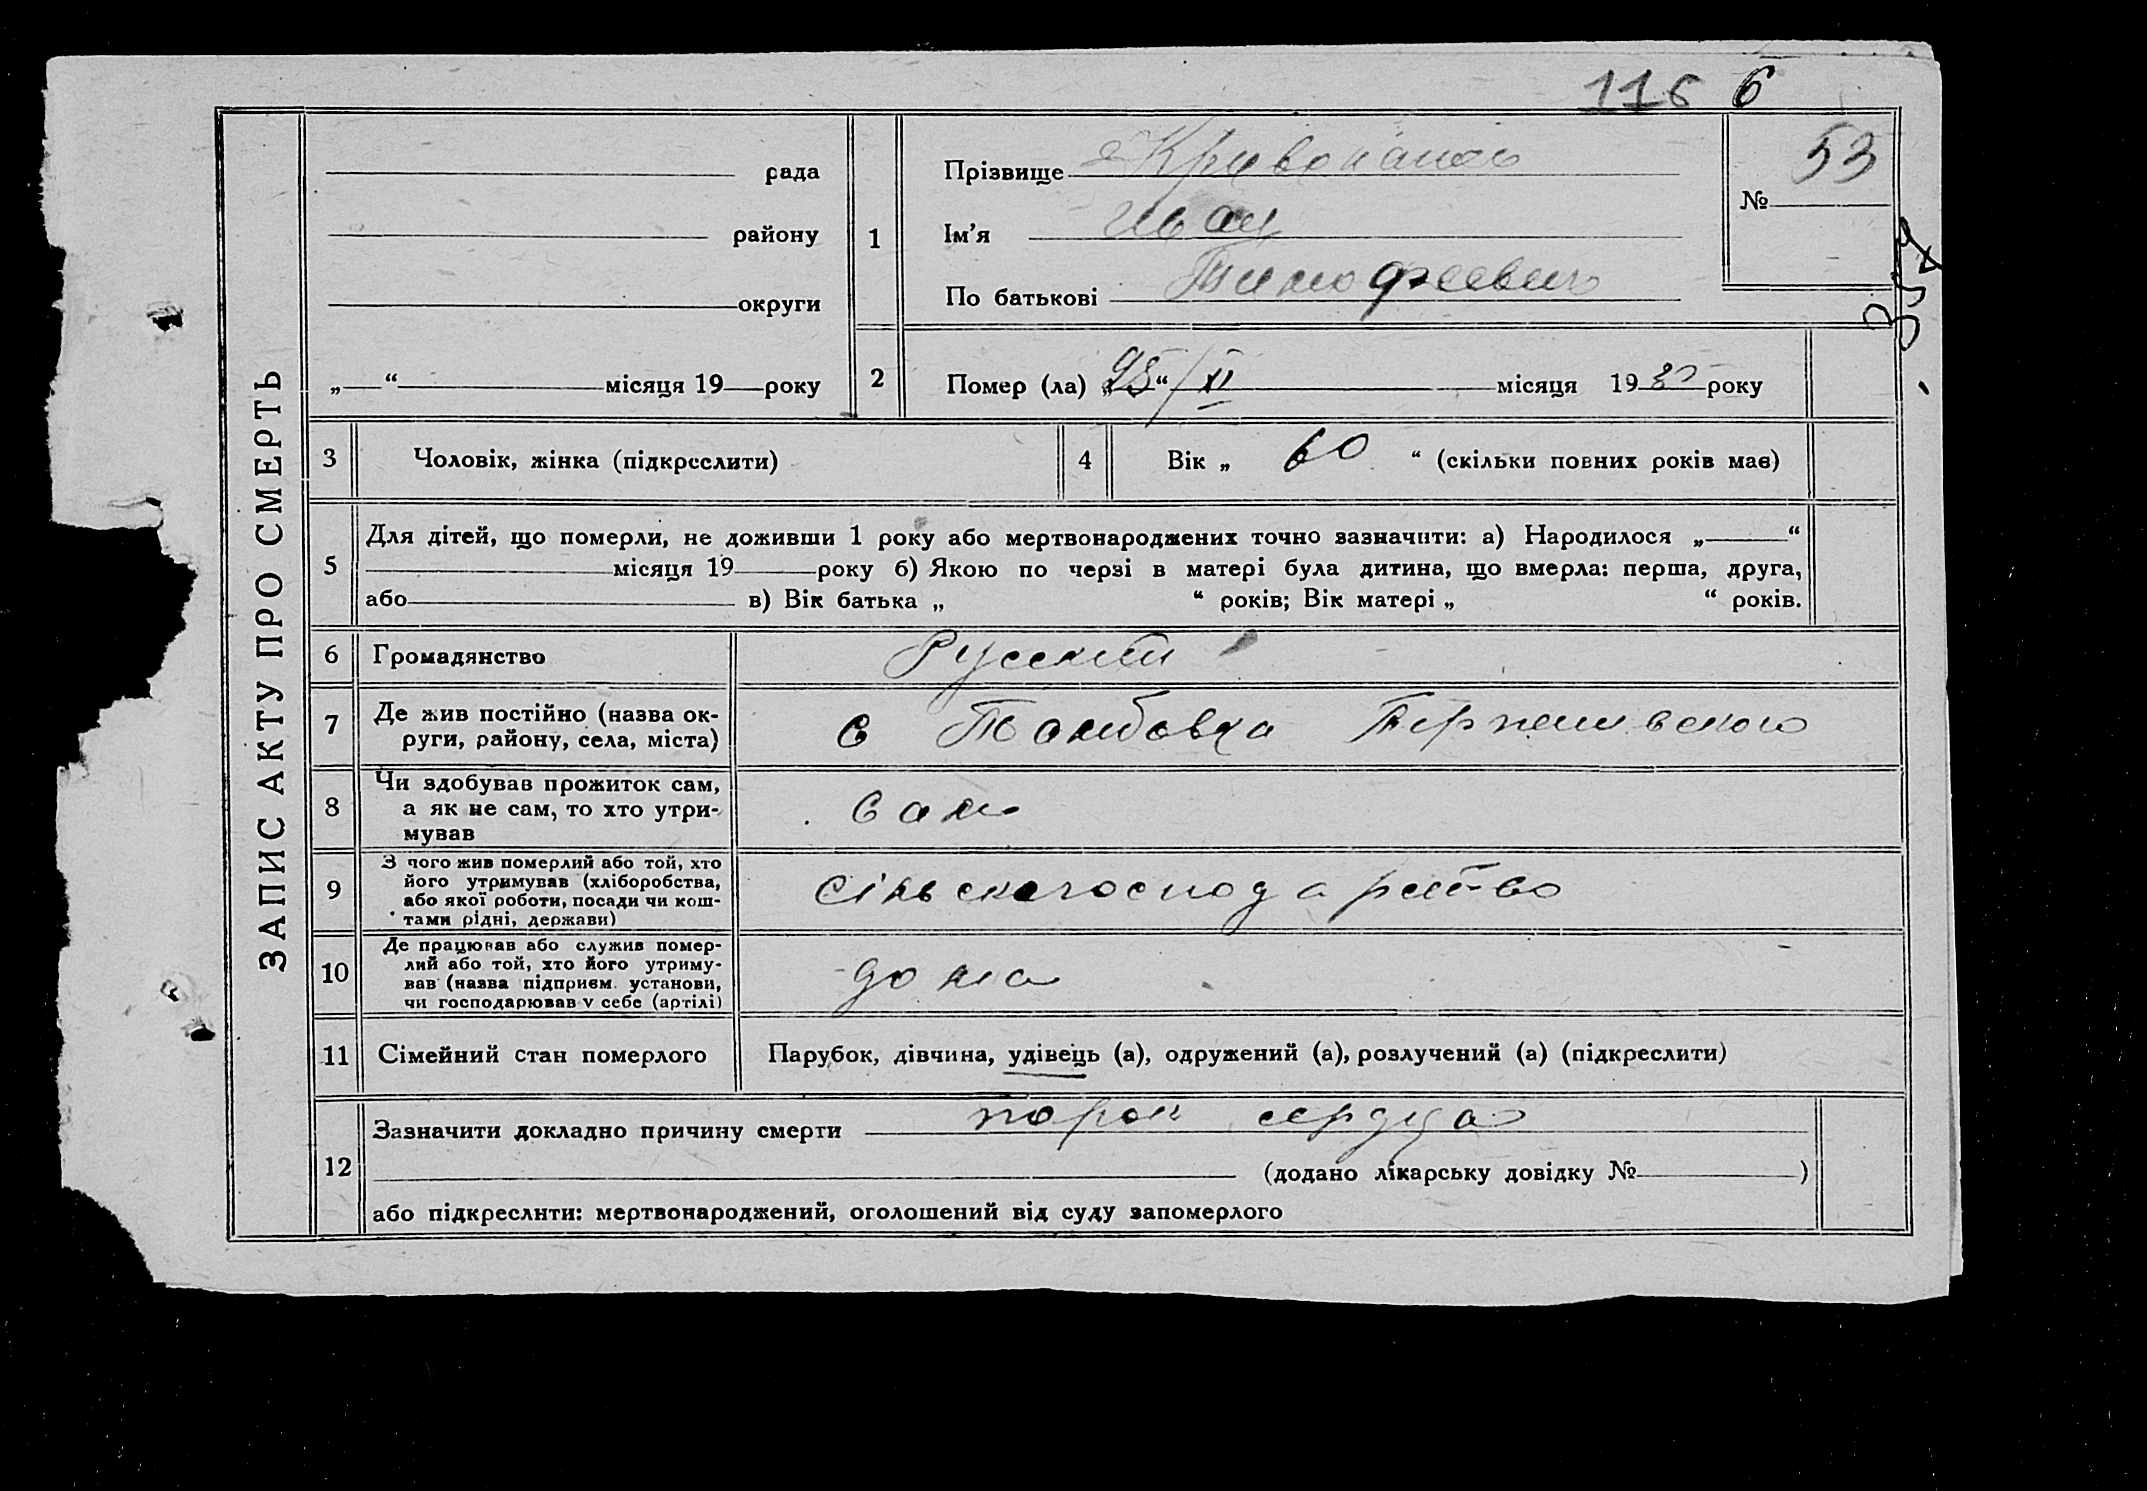 116 6
ЗАПИС АКТУ ПРО СМЕРТЬ
рада
району
округи
„ “ місяця 19 року
1
Прізвище
Ім'я Иван
По батькові Тимофеевич
№ 53
354
2
Помер (ла) „25“/XI місяця 19 року
3
Чоловік, жінка (підкреслити)
4
Вік „ 60 “ (скільки повних років має)
5
Для дітей, що померли, не доживши 1 року або мертвонароджених точно зазначити: а) Народилося „ “
місяця 19 року б) Якою по черзі в матері була дитина, що вмерла: перша, друга,
або в) Вік батька „ “ років; Вік матері „ “ років.
6
Громадянство
Русский
7
Де жив постійно (назва ок-
руги, району, села, міста)
с Тамбовка
8
Чи здобував прожиток сам,
а як не сам, то хто утри-
мував
Сам
9
З чого жив померлий або той, хто
його утримував (хліборобства,
або якої роботи, посади чи кош-
тами рідні, держави)
Сільскогосподарство
10
Де працював або служив помер-
лий або той, хто його утриму-
вав (назва підприєм. установи,
чи господарював у себе (артілі)
дома
11
Сімейний стан померлого
Парубок, дівчина, удівець (а), одружений (а), розлучений (а) (підкреслити)
12
Зазначити докладно причину смерти порок сердца
(додано лікарську довідку № )
або підкреслити: мертвонароджений, оголошений від суду запомерлого